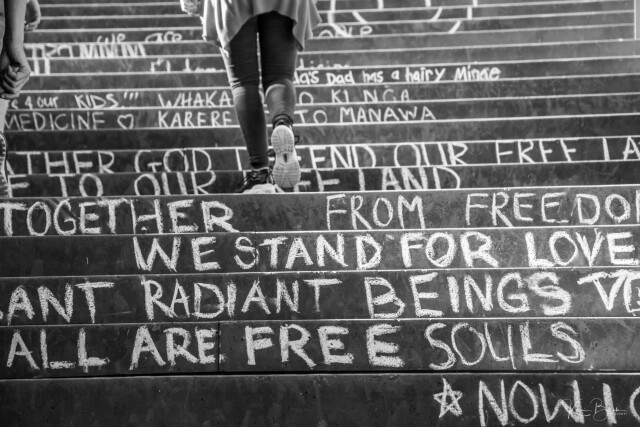 we are
's Dad has a hairy Minge
& our KIDS!!! WHAKA O KI NGA
MEDICINE ♡ KARERE TO MANAWA
THER GOD END OUR FREE LA
E TO OUR FREE LAND
TOGETHER FROM FREEDO
WE STAND FOR LOVE
ANT RADIANT BEINGS
ALL ARE FREE SOULS
☆ NOW I